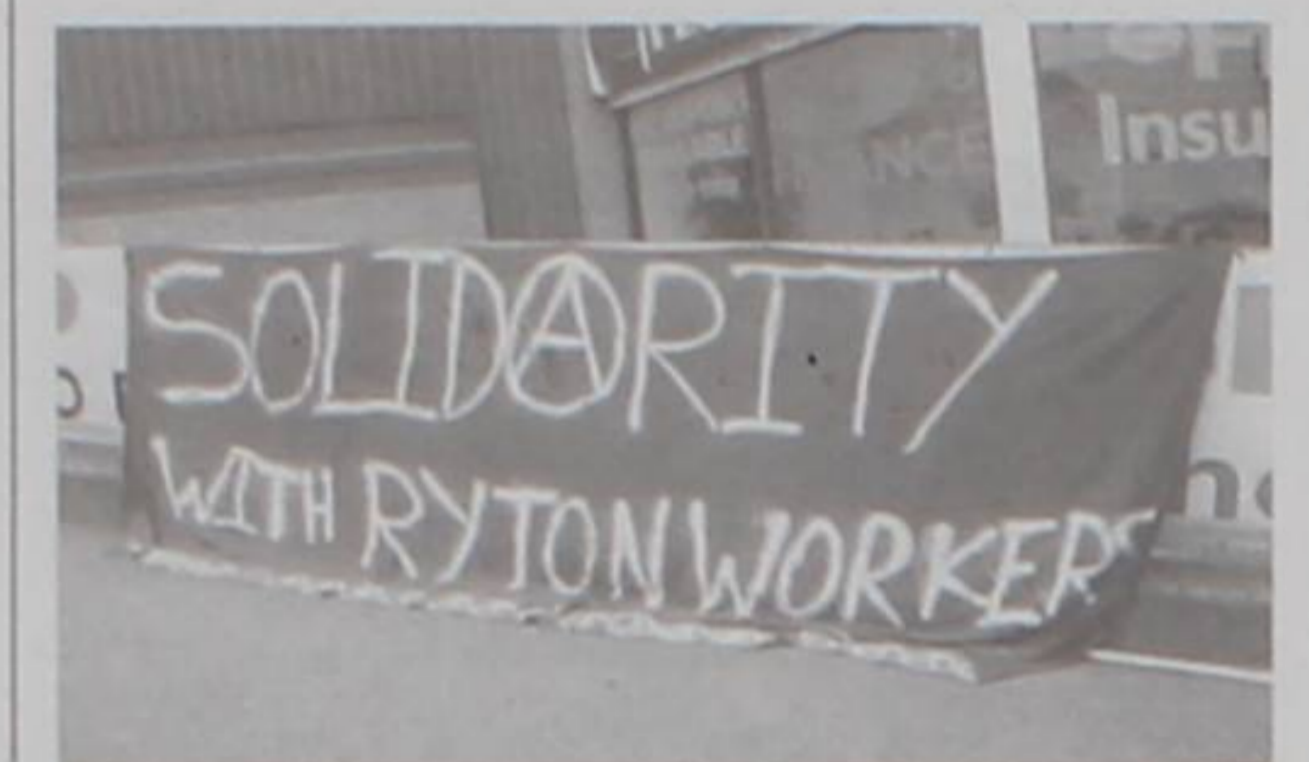 Insu
NCE
SOLIDARITY
WITH RYTON WORKERS